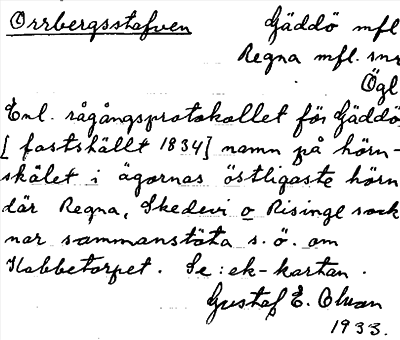 Orrbergsstafven
Gäddö mfl
Regna mfl. snr
Ögl
Enl. rågångsprotokollet för Gäddö
[fastställt 1834] namn på hörn-
skälet i ägornas östligaste hörn
där Regna, Skedevi o Risinge sock
nar sammanstöta s.ö. om
Klabbetorpet. Se: ek-kartan.
Gustaf E.
1933.